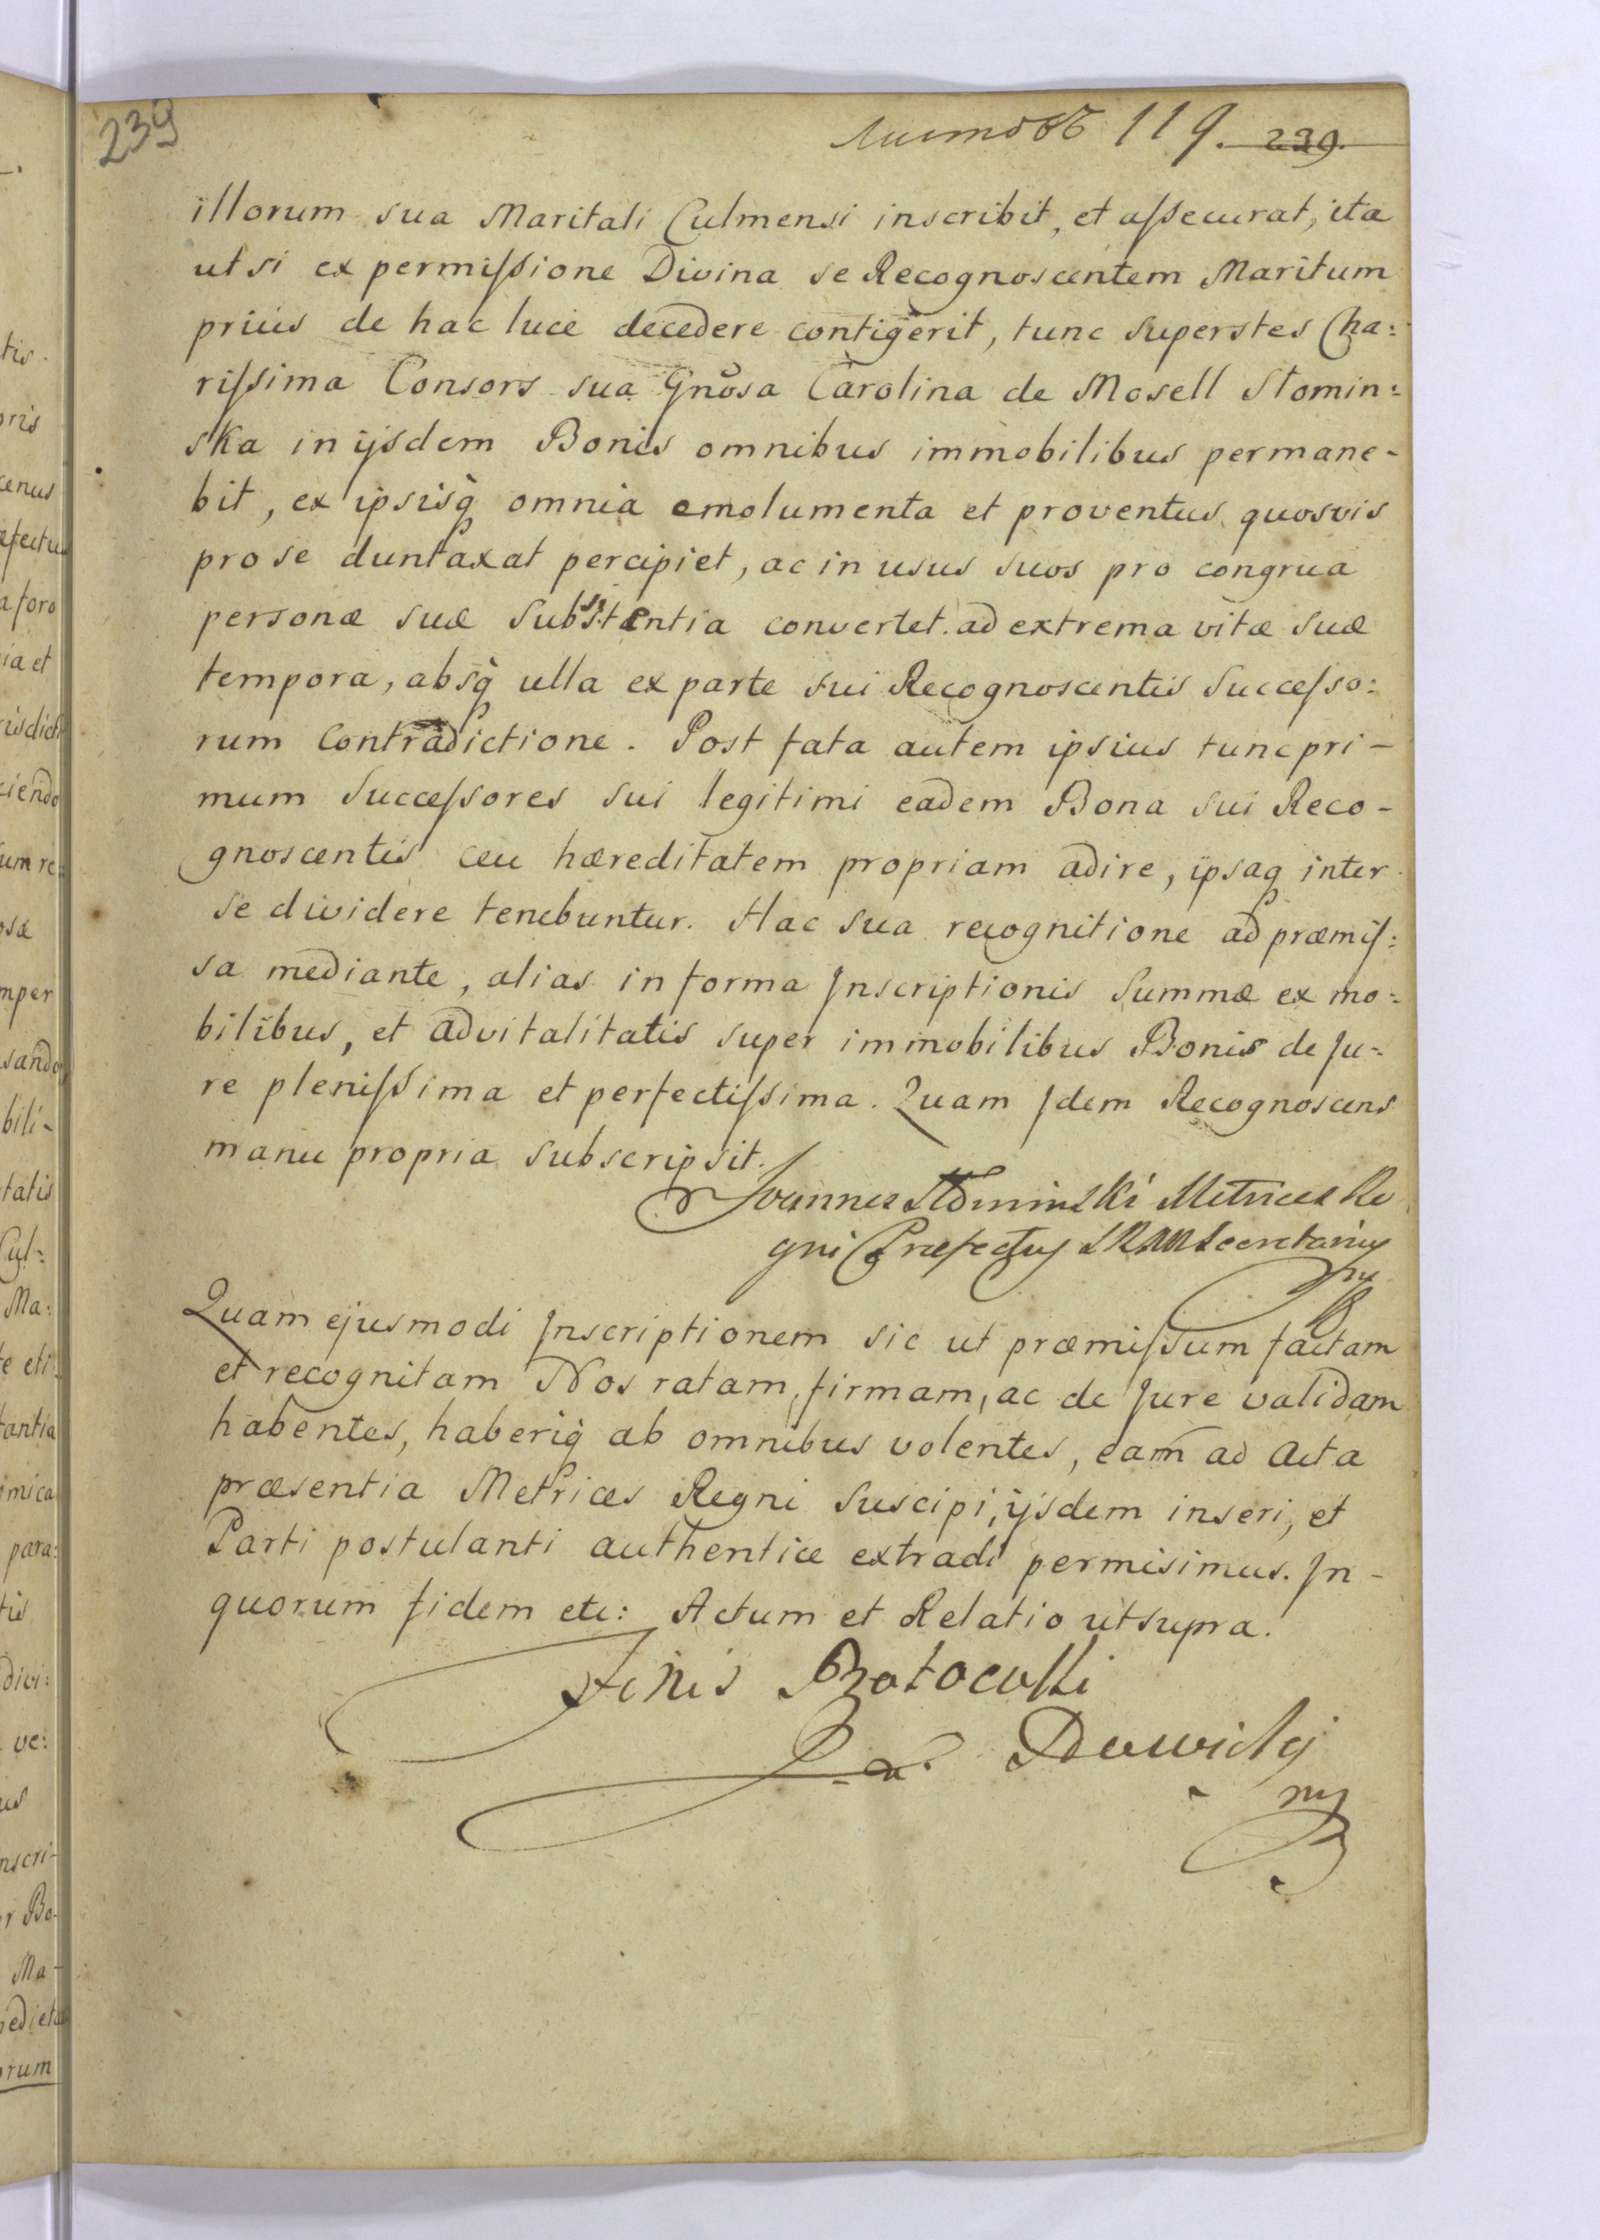 239
листовъ 119. 239.
illorum sua Maritali Culmensi inscribit, et aſsecurat, ita
ut si ex permiſsione Divina se Recognoscentem Maritum
prius de hac luce decedere contigerit, tunc Superstes Cha:
riſsima Consors sua Gnosa Carolina de Mosell Słomin:
ska in ijsdem Bonis omnibus immobilibus permane-
bit, ex ipsisq̀ omnia emolumenta et proventus quosvis
pro se duntaxat percipiet, ac in usus suos pro congrua
personæ suæ Subsistentia convertet. ad extrema vitæ suæ
tempora, absq̀ ulla ex parte sui Recognoscentis Succeſso:
rum Contradictione. Post fata autem ipsius tunc pri-
mum Succeſsores sui legitimi eadem Bona sui Reco-
gnoscentis ceu hæreditatem propriam adire, ipsaq inter
se dividere tenebuntur. Hac sua recognitione ad præmiſ:
sa mediante, alias in forma Inscriptionis Summæ ex mo:
bilibus, et advitalitatis super immobilibus Bonis de Ju:
re pleniſsima et perfectiſsima. Quam Idem Recognoscens
manu propria subscripsit.
Joannes Słominski Metrices Re
gni Præfectus SRM Secretarius
mp
Quam ejusmodi Inscriptionem sic ut præmiſsum factam
et recognitam Nos ratam, firmam, ac de Jure validam
habentes, haberiq̀ ab omnibus volentes, eam̄ ad Acta
præsentia Metrices Regni Suscipi, ijsdem inseri, et
Parti postulanti authentice extradi permisimus. In-
quorum fidem etc: Actum et Relatio ut supra.
Finis Protocolli
mp